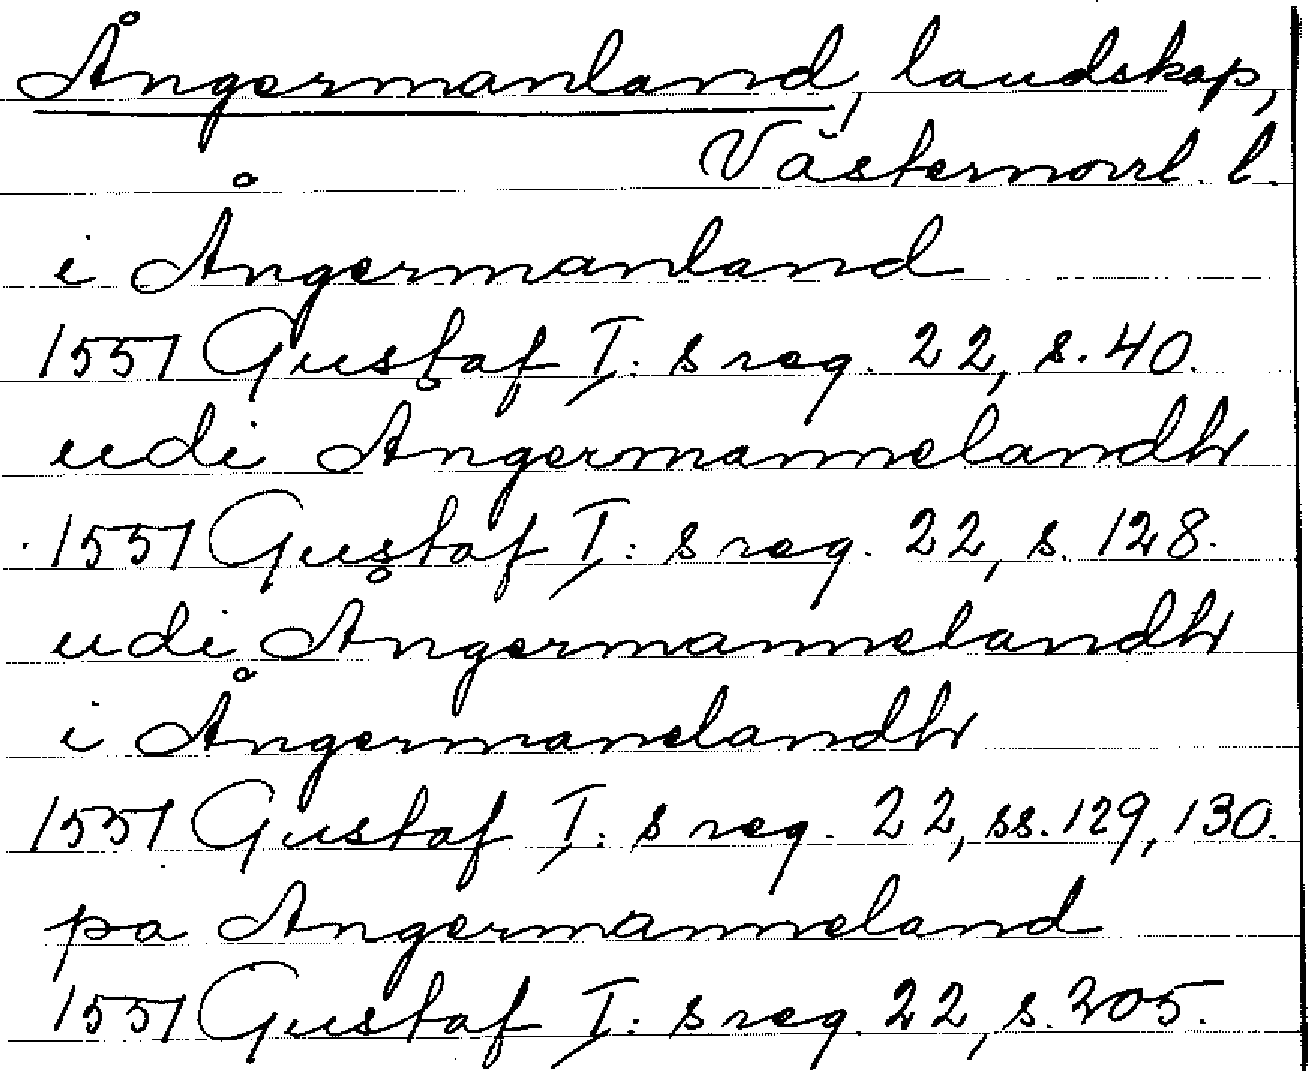 Ångermanland, landskap,
Västernorrl. l.
i Ångermanland
1551 Gustaf I: s reg. 22, s. 40.
udi Angermannelandh
1551 Gustaf I: s reg. 22, s. 128.
udi Ångermannelandh
i Ångermanelandh
1551 Gustaf I: s reg. 22, ss. 129, 130.
pa Angermanneland
1551 Gustaf I: s reg. 22, s. 205.